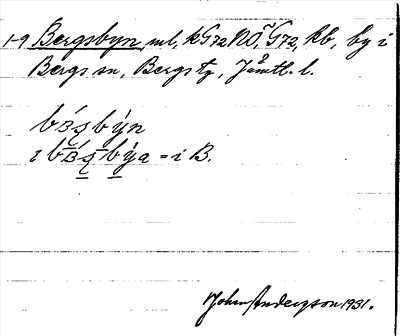 1-9 Bergsbyn, ml, kG72NÖ, G72, kb, by i
Bergs sn, Bergs tg, Jämtl. l.
bɞ́sbýn
i bɞ́sbýa = i B.
John Anderzon 1931.